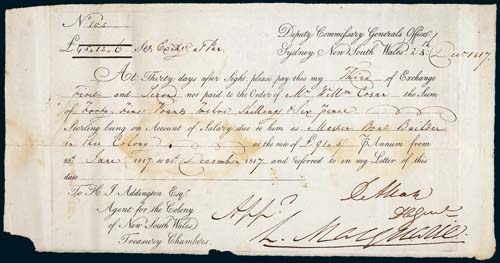 No.
£45.12.6
Deputy Commissary Generals Office
Sydney New South Wales 24th Decr 1817
At Thirty days after Sight, please pay this my Third of Exchange
First and Second not paid to the Order of Mr Willm Cosar the Sum
of Forty Five Pounds Twelve Shillings & Six pence
Sterling being on Account of Salary due to him as Master Boat Builder
in this Colony at the rate of P. Annum from
June 1817 to December 1817 and referred to in my Letter of this
date
To H. J. Addington Esqr.
Agent for the Colony
of New South Wales
Treasury Chambers.
D. Allan
L. Macquarie